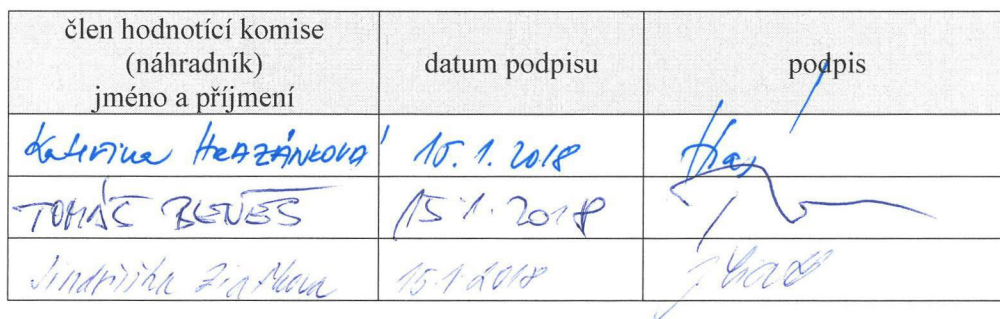 člen hodnotící komise
(náhradník)
jméno a příjmení
datum podpisu
podpis
Kateřina HRAZÁNKOVÁ 15. 1. 2018
TOMÁŠ BENEŠ 15.1.2018
Jindřiška 15.1.2018